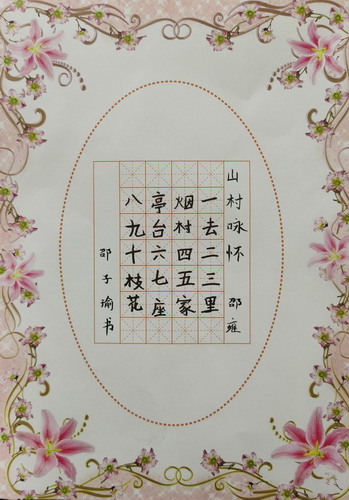 山村咏怀 邵雍
一去二三里
烟村四五家
亭台六七座
八九十枝花
邵子瑜书